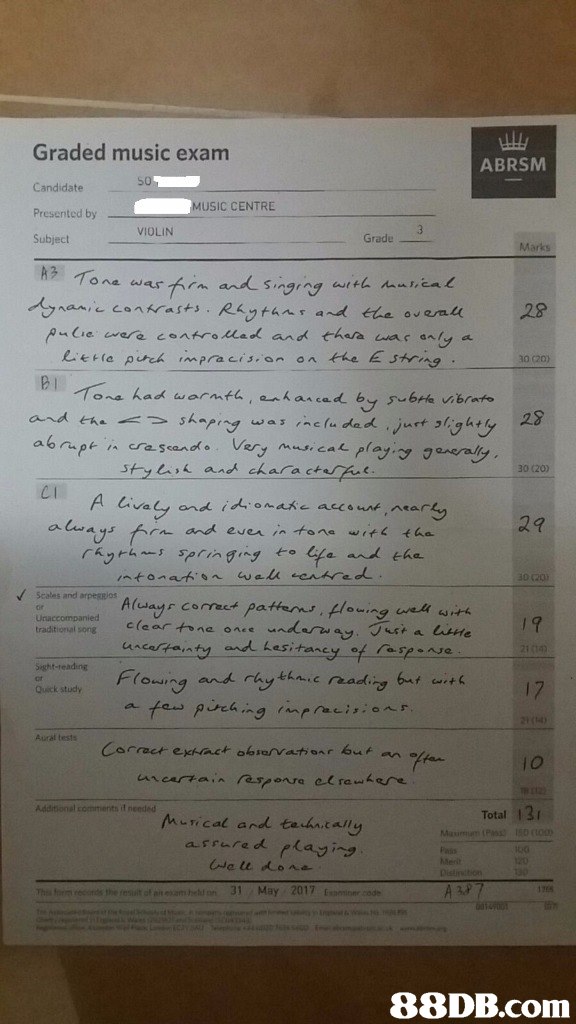 Graded music exam
ABRSM
Candidate SO
Presented by MUSIC CENTRE
Subject VIOLIN Grade 3
Marks
A3 Tone was firm and singing with musical
dynamic contrasts. Rhythms and the overall 28
pulse were controlled and there was only a
little pitch imprecision on the E string. 30 (20)
B1 Tone had warmth, enhanced by subtle vibrato
and the < > shaping was included, just slightly 28
abrupt in crescendo. Very musical playing generally,
stylish and characterful. 30 (20)
C1 A lively and idiomatic account, nearly
always firm and even in tone with the 29
rhythms springing to life and the
intonation well centred. 30 (20)
✓ Scales and arpeggios
or
Unaccompanied
traditional song
Always correct patterns, flowing well with
clear tone once underway. Just a little 19
uncertainty and hesitancy of response. 21 (14)
Sight-reading
or
Quick study
Flowing and rhythmic reading but with 17
a few pitching imprecisions. 21 (14)
Aural tests
Correct extract observations but an often 10
uncertain response elsewhere. 18 (12)
Additional comments if needed
Musical and technically
assured playing.
Well done.
Total 131
Maximum (Pass) 150 (100)
Pass 100
Merit 120
Distinction 130
This form records the result of an exam held on 31 May 2017 Examiner code A387
88DB.com